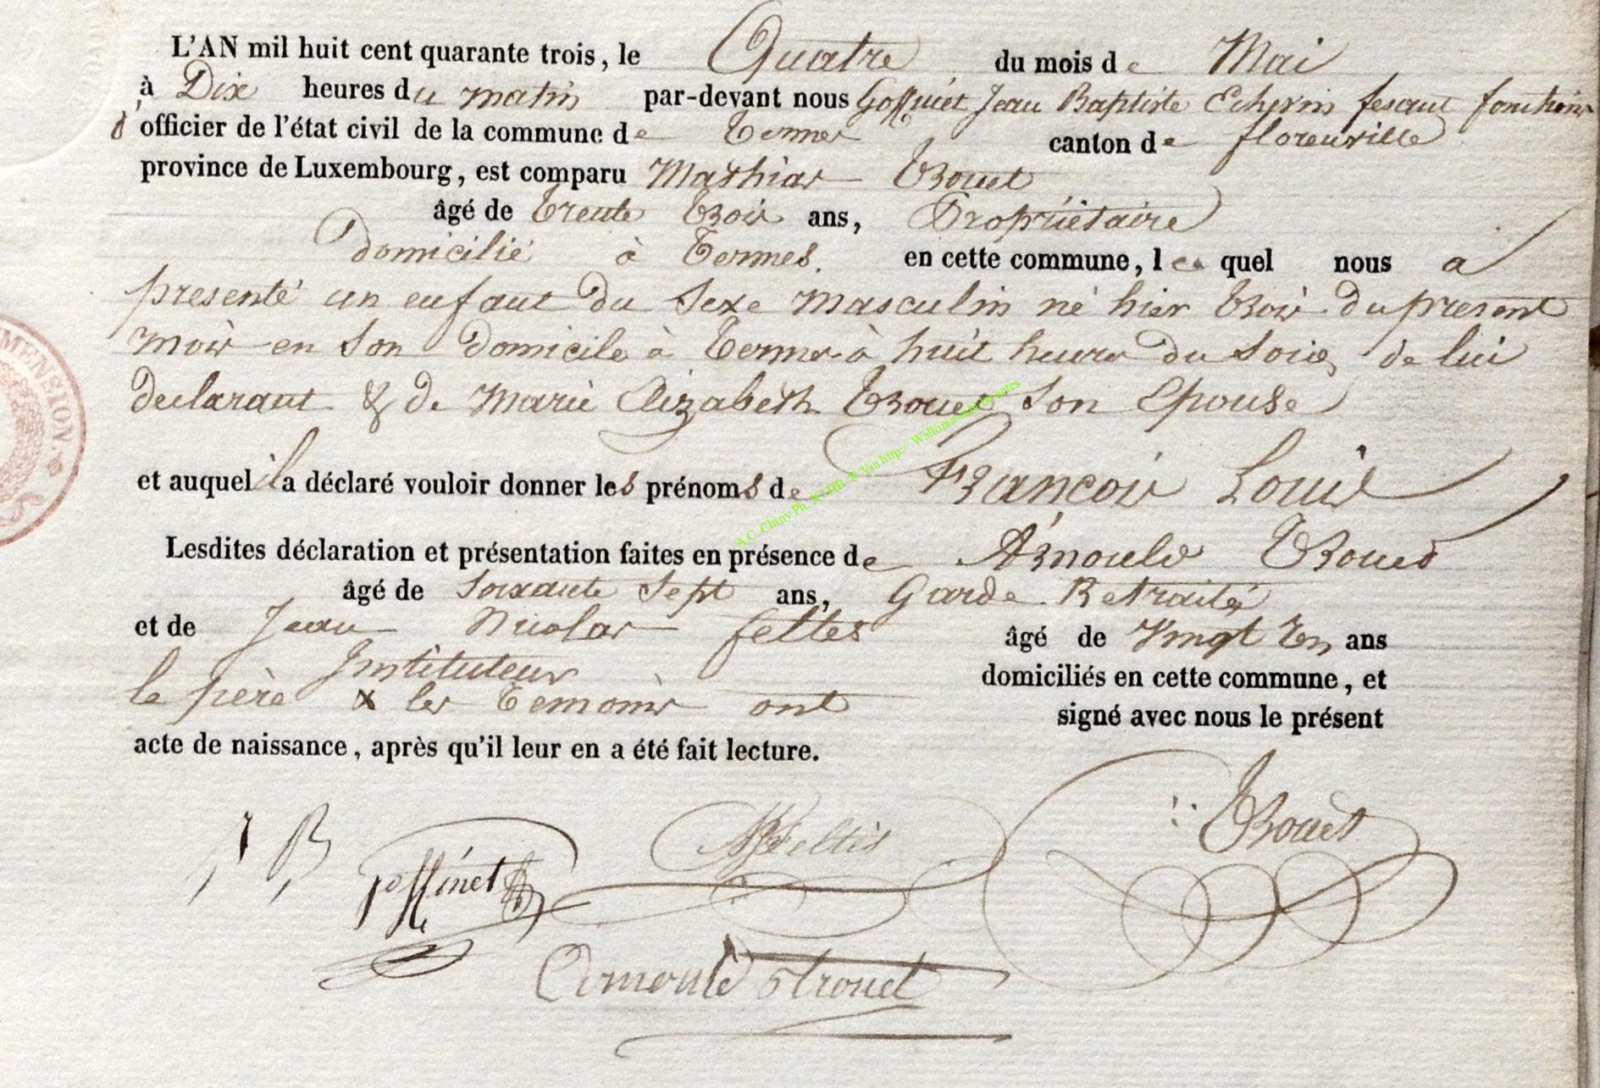 L'AN mil huit cent quarante trois, le Quatre du mois de Mai
à Dix heures du matin par-devant nous Goffinet Jean Baptiste Echevin fesant fonction
d'officier de l'état civil de la commune de Termes canton de florenville
province de Luxembourg, est comparu Mathias Trouet
âgé de trente trois ans, Propriétaire
domicilié à Termes. en cette commune, lequel nous a
presenté un enfant du sexe masculin né hier trois du present
mois en son domicile à Termes à huit heures du soir, de lui
declarant & de Marie Elizabeth Trouet son Epouse
et auquel il a déclaré vouloir donner les prénoms de François Louis
Lesdites déclaration et présentation faites en présence de Arnould Trouet
âgé de soixante sept ans, Garde Retraité
et de Jean Nicolas feltes âgé de vingt un ans
Instituteur domiciliés en cette commune, et
le père & les témoins ont signé avec nous le présent
acte de naissance, après qu'il leur en a été fait lecture.
J B Goffinet Feltes Trouet
Arnould Trouet
MENSION